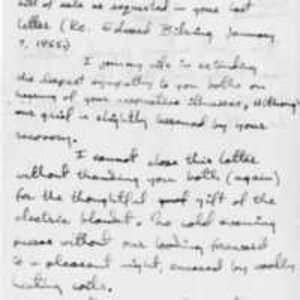 bill of sale as requested in your last
letter (Re. Edward Bilving January
7, 1955)
I join my wife in extending
the deepest sympathy to you both on
hearing of your respective illnesses, although
our grief is slightly lessened by your
recovery.
I cannot close this letter
without thanking you both (again)
for the thoughtful gift of the
electric blanket. No cold evening
passes without our looking forward
to a pleasant night, caressed by
heating coils.